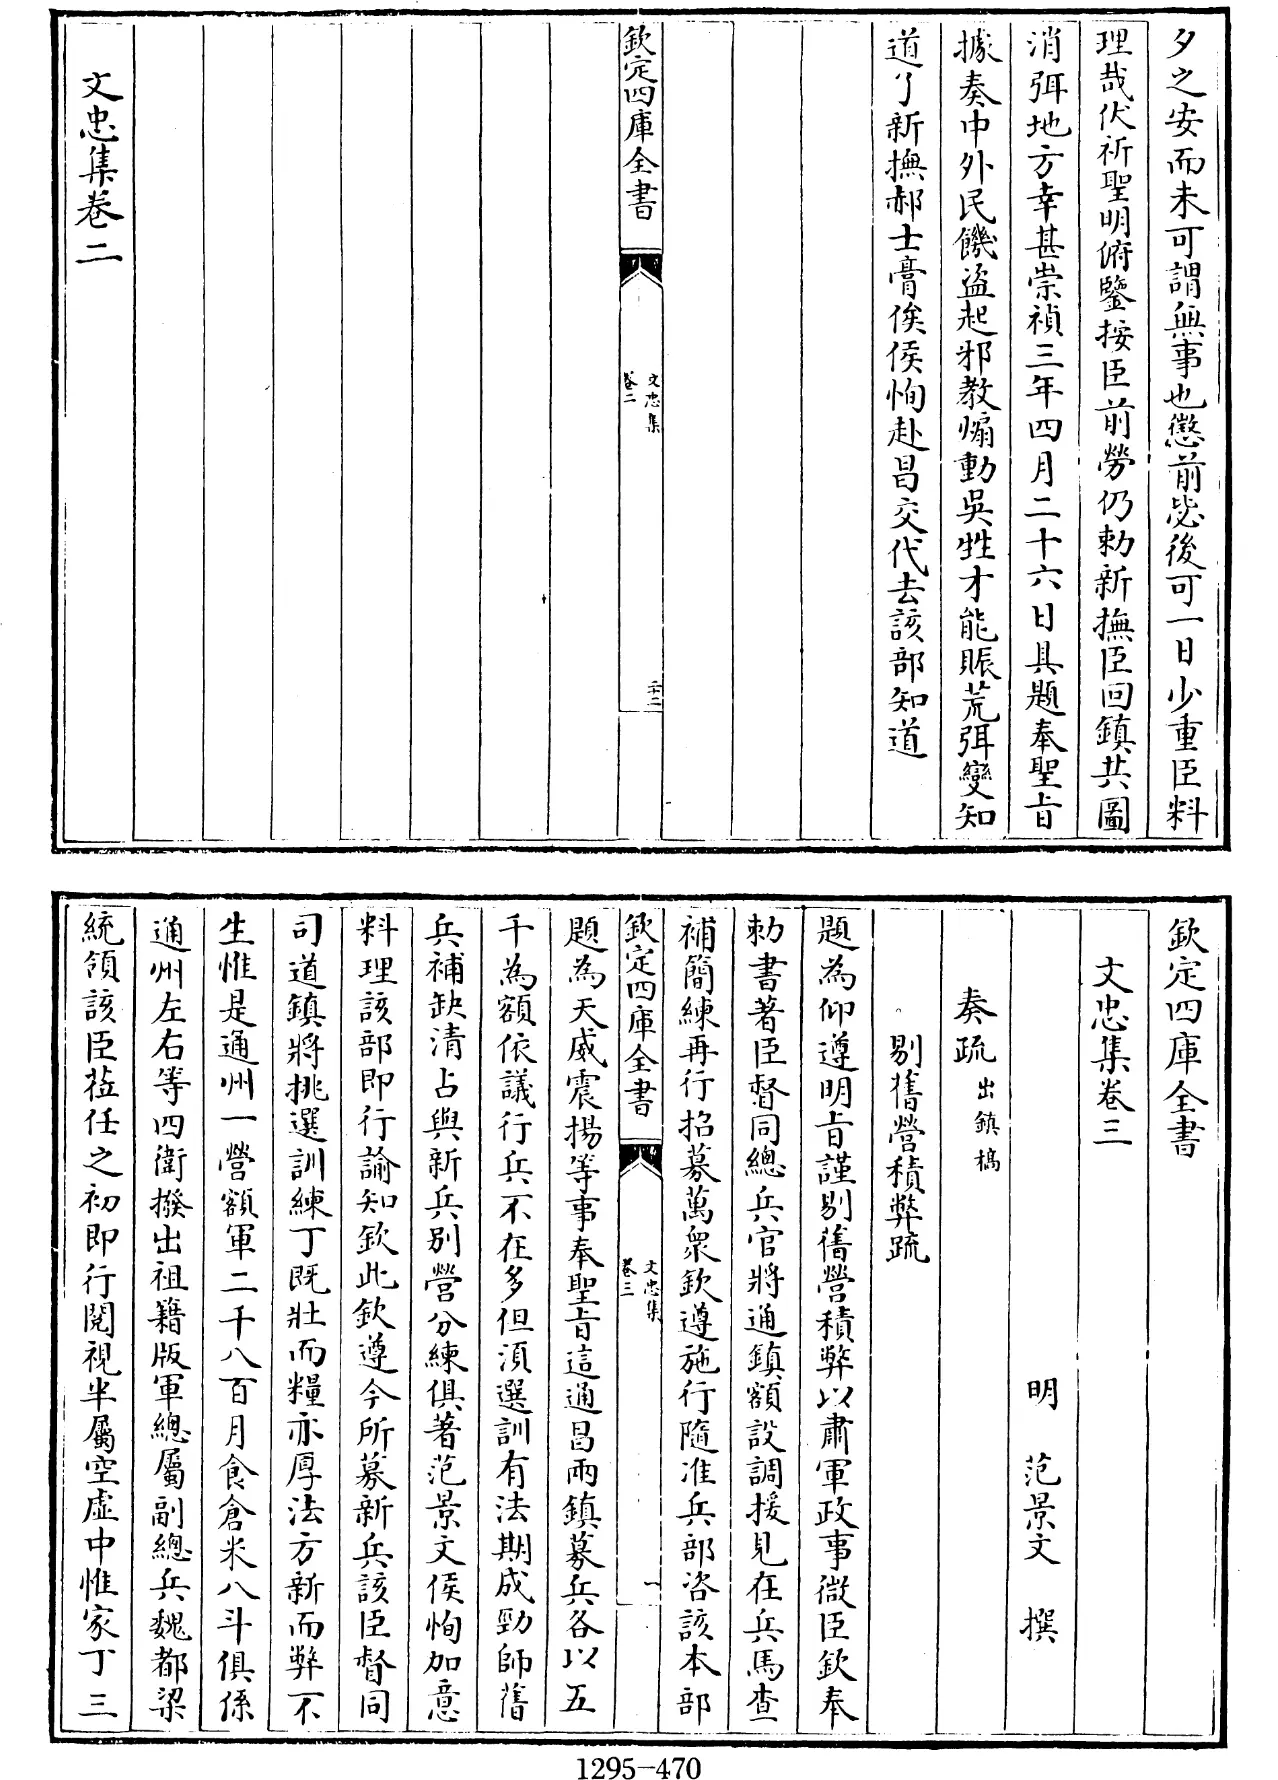 夕之安而未可謂無事也懲前毖後可一日少重臣料
理哉伏祈聖明俯鑒按臣前勞仍勅新撫臣回鎮共圖
消弭地方幸甚崇禎三年四月二十六日具題奉聖旨
據奏中外民饑盜起邪教煽動吳甡才能賑荒弭變知
道了新撫郝士膏俟侯恂赴昌交代去該部知道
欽定四庫全書
文忠集
卷二
二十二
文忠集卷二
欽定四庫全書
文忠集卷三
明 范景文 撰
奏疏 出鎮槁
剔舊營積弊疏
題為仰遵明旨謹剔舊營積弊以肅軍政事微臣欽奉
勅書著臣督同總兵官將通鎮額設調援見在兵馬查
補簡練再行招募萬眾欽遵施行隨准兵部咨該本部
欽定四庫全書
文忠集
卷三
一
題為天威震揚等事奉聖旨這通昌兩鎮募兵各以五
千為額依議行兵不在多但須選訓有法期成勁師舊
兵補缺清占與新兵別營分練俱著范景文侯恂加意
料理該部即行諭知欽此欽遵今所募新兵該臣督同
司道鎮將挑選訓練丁既壯而糧亦厚法方新而弊不
生惟是通州一營額軍二千八百月食倉米八斗俱係
通州左右等四衛撥出祖籍版軍總屬副總兵魏都梁
統領該臣蒞任之初即行閱視半屬空虛中惟家丁三
1295-470